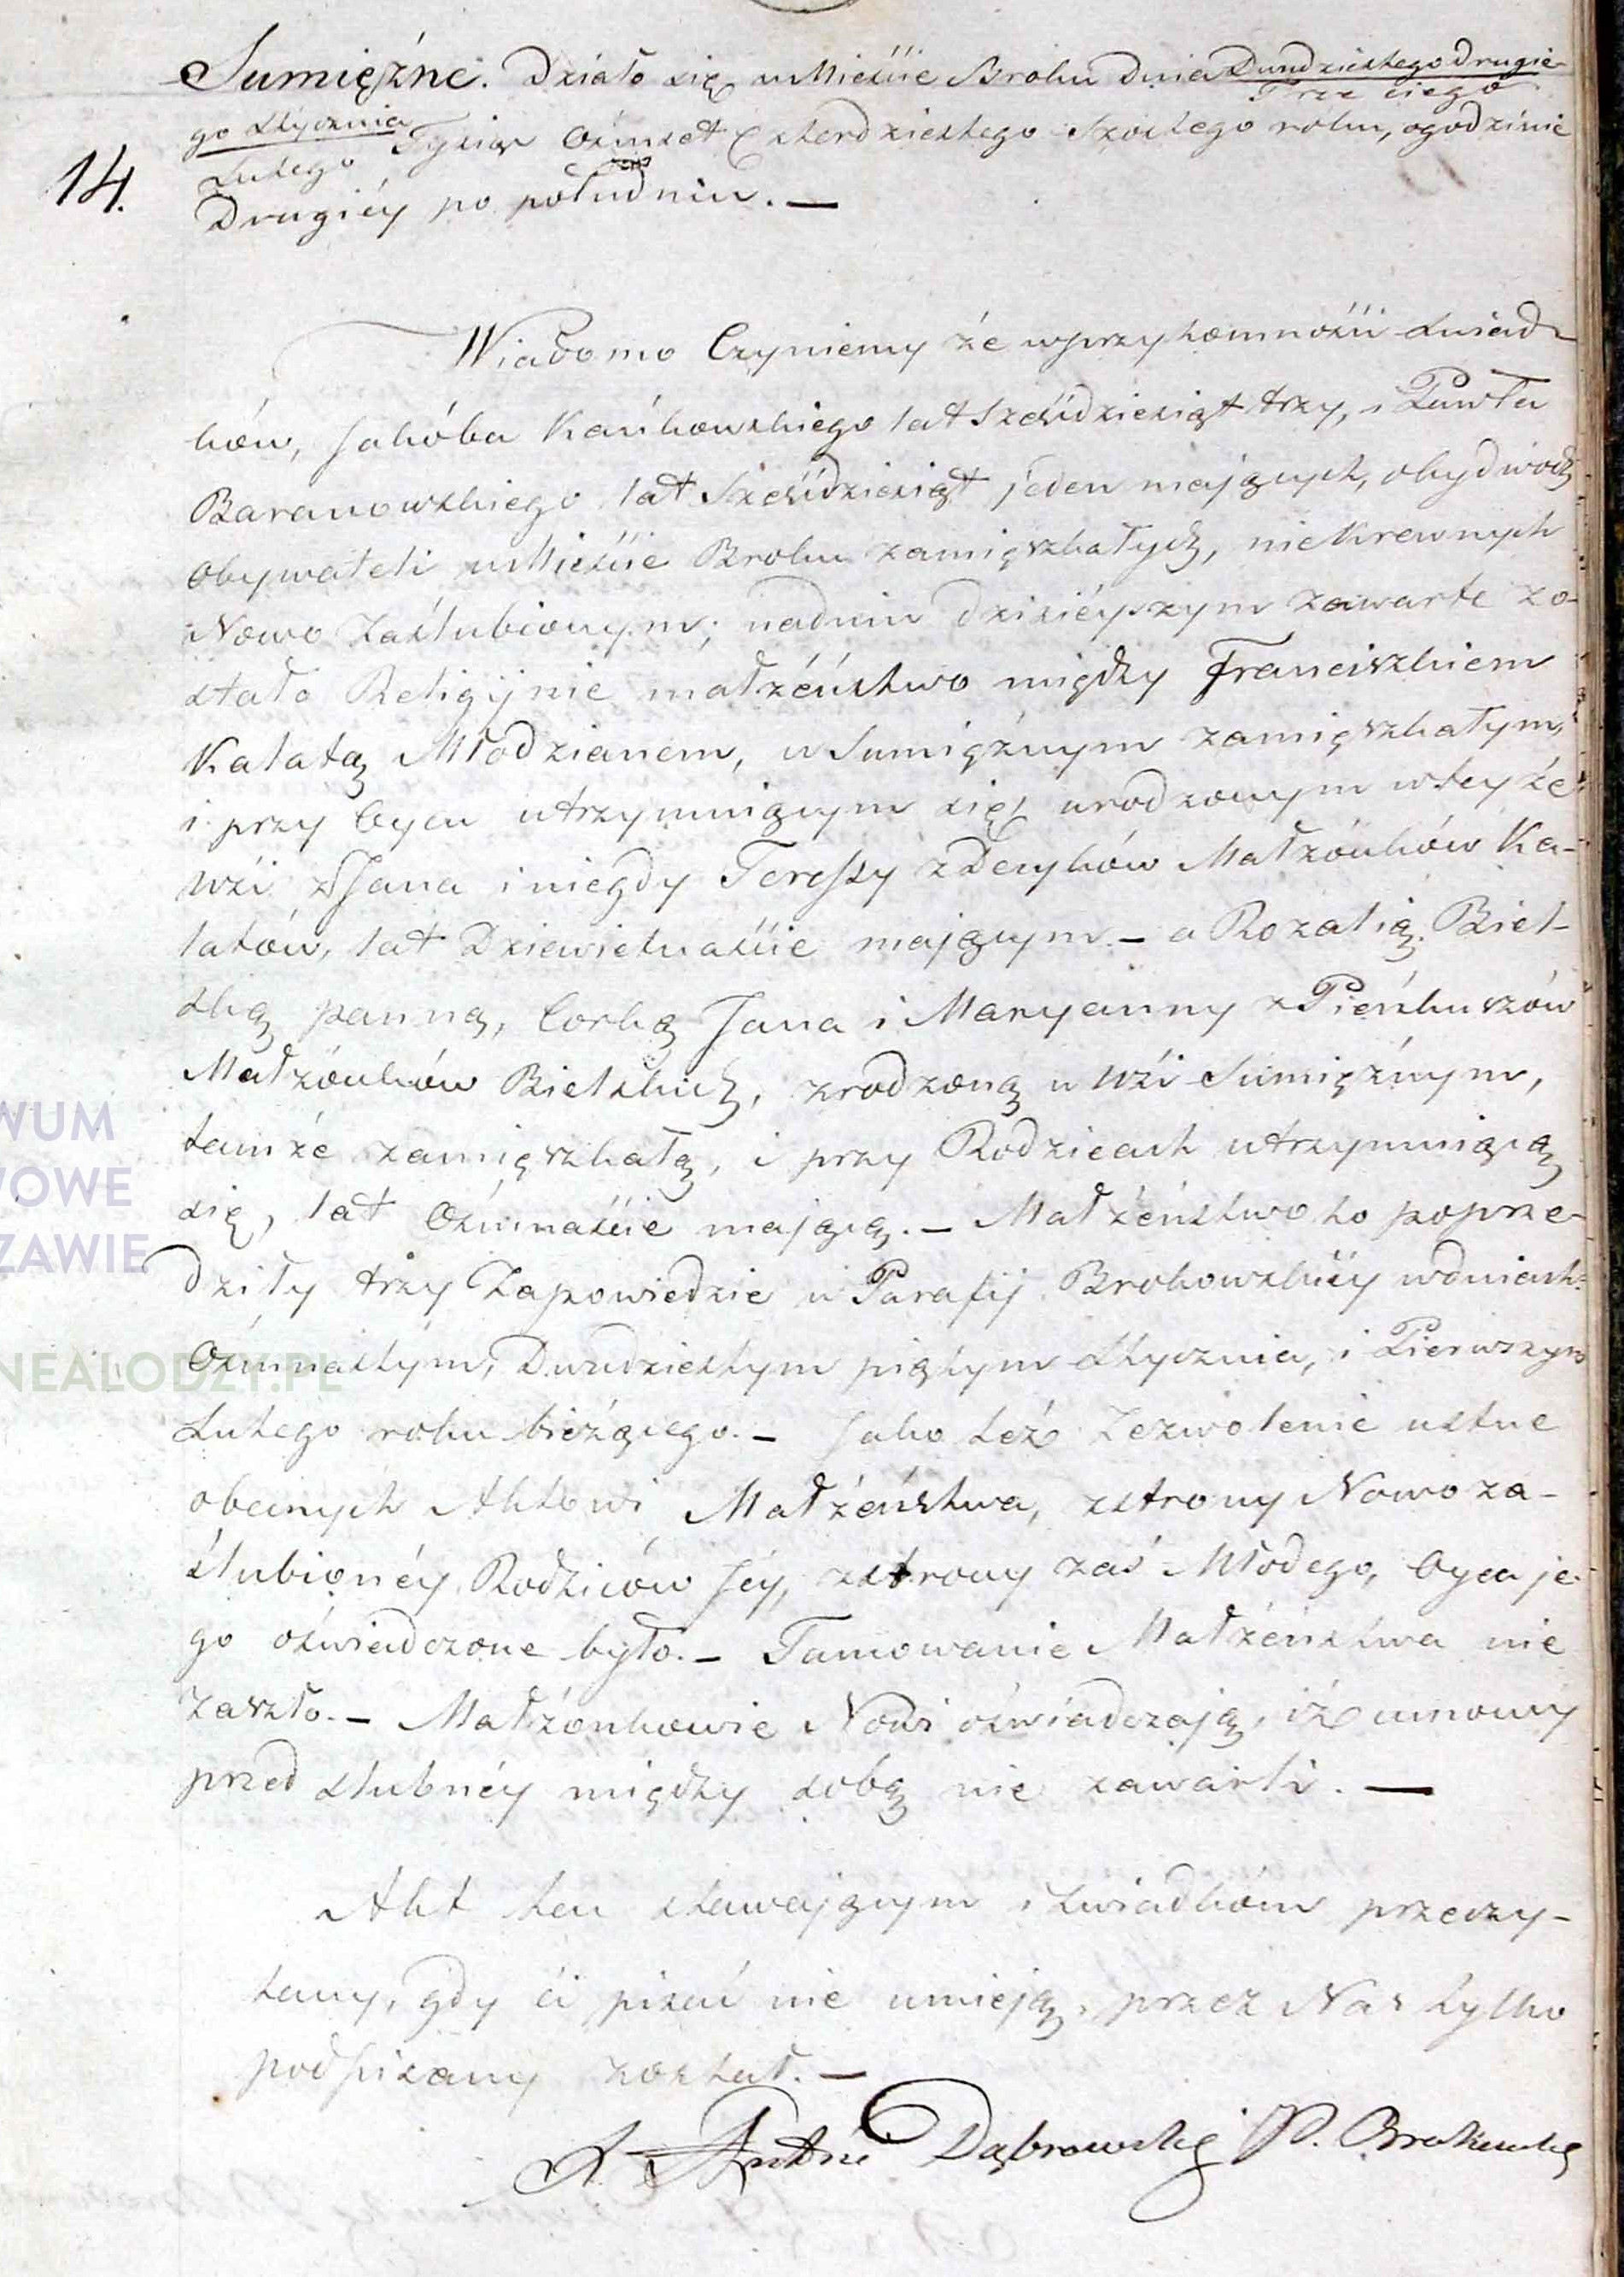 Sumiężne. Działo się w Mieście Broku Dnia Dwudziestego Drugie-
Trzeciego
go Stycznia Tysiąc Ośmset Czterdziestego Szóstego roku, o godzinie
Lutego
14.
Drugiéy po południu. —
Wiadomo Czyniemy że w przytomności świad-
ków, Jakóba Kańkowskiego lat Sześćdziesiąt trzy, i Pawła
Baranowskiego lat Sześćdziesiąt jeden mających, obydwóch
Obywateli w Mieście Broku zamięszkałych, nie Krewnych
Nowo Zaślubionym; na dniu dzisiéyszym zawarte zo-
stało Religijnie małżéństwo między Franciszkiem
Kalatą Młodzianem, w Sumiężnym zamięszkałym,
i przy Oycu utrzymuiącym się, urodzonym w teyże
Wsi z Jana i niegdy Teressy z Deryków Małżonków Ka-
latów, lat Dziewietnaście mającym. — a Rozalią Biel-
ską panną, Corką Jana i Maryanny z Pieńkuszów
Małżonków Bielskich, zrodzoną w Wsi Sumiężnym,
tamże zamięszkałą, i przy Rodzicach utrzymuiącą
się, lat Ośmnaście mającą. — Małżeństwo to poprze-
dziły trzy Zapowiedzie w Parafij Brokowskiéy w dniach
Ośmnastym, Dwudziestym piątym Stycznia, i Pierwszym
Lutego roku bieżącego. — Jako też Zezwolenie ustne
obecnych Aktowi Małżeństwa, z strony Nowo za-
ślubionéy Rodziców Jéy, z strony zaś Młodego, Oyca je-
go oświadczone było. — Tamowanie Małżéństwa nie
zaszło. — Małżonkowie Nowi oświadczają, iż umowy
przed ślubnéy między sobą nie zawarli. —
Akt ten stawającym i świadkóm przeczy-
tany, gdy ci pisać nie umieją, przez Nas tylko
podpisany został. —
X. Dąbrowski P. Brokowski
WUM
WOWE
ZAWIE
NEALODZY.PL